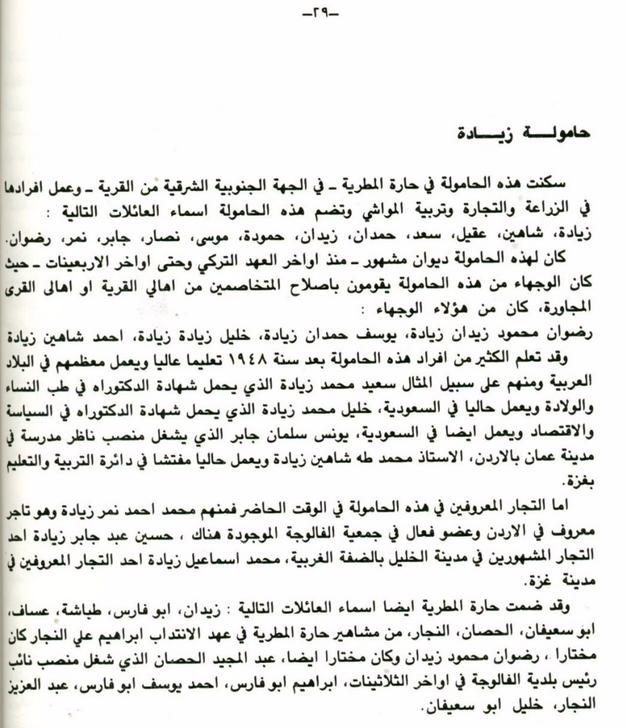 –٢٩–
حامولة زيادة
سكنت هذه الحامولة في حارة المطرية – في الجهة الجنوبية الشرقية من القرية – وعمل افرادها
في الزراعة والتجارة وتربية المواشي وتضم هذه الحامولة اسماء العائلات التالية :
زيادة، شاهين، عقيل، سعد، حمدان، زيدان، حمودة، موسى، نصار، جابر، نمر، رضوان.
كان لهذه الحامولة ديوان مشهور – منذ اواخر العهد التركي وحتى اواخر الاربعينات – حيث
كان الوجهاء من هذه الحامولة يقومون باصلاح المتخاصمين من اهالي القرية او اهالى القرى
المجاورة، كان من هؤلاء الوجهاء :
رضوان محمود زيدان زيادة، يوسف حمدان زيادة، خليل زيادة زيادة، احمد شاهين زيادة
وقد تعلم الكثير من افراد هذه الحامولة بعد سنة ١٩٤٨ تعليما عاليا ويعمل معظمهم في البلاد
العربية ومنهم على سبيل المثال سعيد محمد زيادة الذي يحمل شهادة الدكتوراه في طب النساء
والولادة ويعمل حاليا في السعودية، خليل محمد زيادة الذي يحمل شهادة الدكتوراه في السياسة
والاقتصاد ويعمل ايضا في السعودية، يونس سلمان جابر الذي يشغل منصب ناظر مدرسة في
مدينة عمان بالاردن، الاستاذ محمد طه شاهين زيادة ويعمل حاليا مفتشا في دائرة التربية والتعليم
بغزة.
اما التجار المعروفين في هذه الحامولة في الوقت الحاضر فمنهم محمد احمد نمر زيادة وهو تاجر
معروف في الاردن وعضو فعال في جمعية الفالوجة الموجودة هناك ، حسين عبد جابر زيادة احد
التجار المشهورين في مدينة الخليل بالضفة الغربية، محمد اسماعيل زيادة احد التجار المعروفين في
مدينة غزة.
وقد ضمت حارة المطرية ايضا اسماء العائلات التالية : زيدان، ابو فارس، طباشة، عساف،
ابو سعيفان، الحصان، النجار، من مشاهير حارة المطرية في عهد الانتداب ابراهيم علي النجار كان
مختارا ، رضوان محمود زيدان وكان مختارا ايضا، عبد المجيد الحصان الذي شغل منصب نائب
رئيس بلدية الفالوجة في اواخر الثلاثينات، ابراهيم ابو فارس، احمد يوسف ابو فارس، عبد العزيز
النجار، خليل ابو سعيفان.